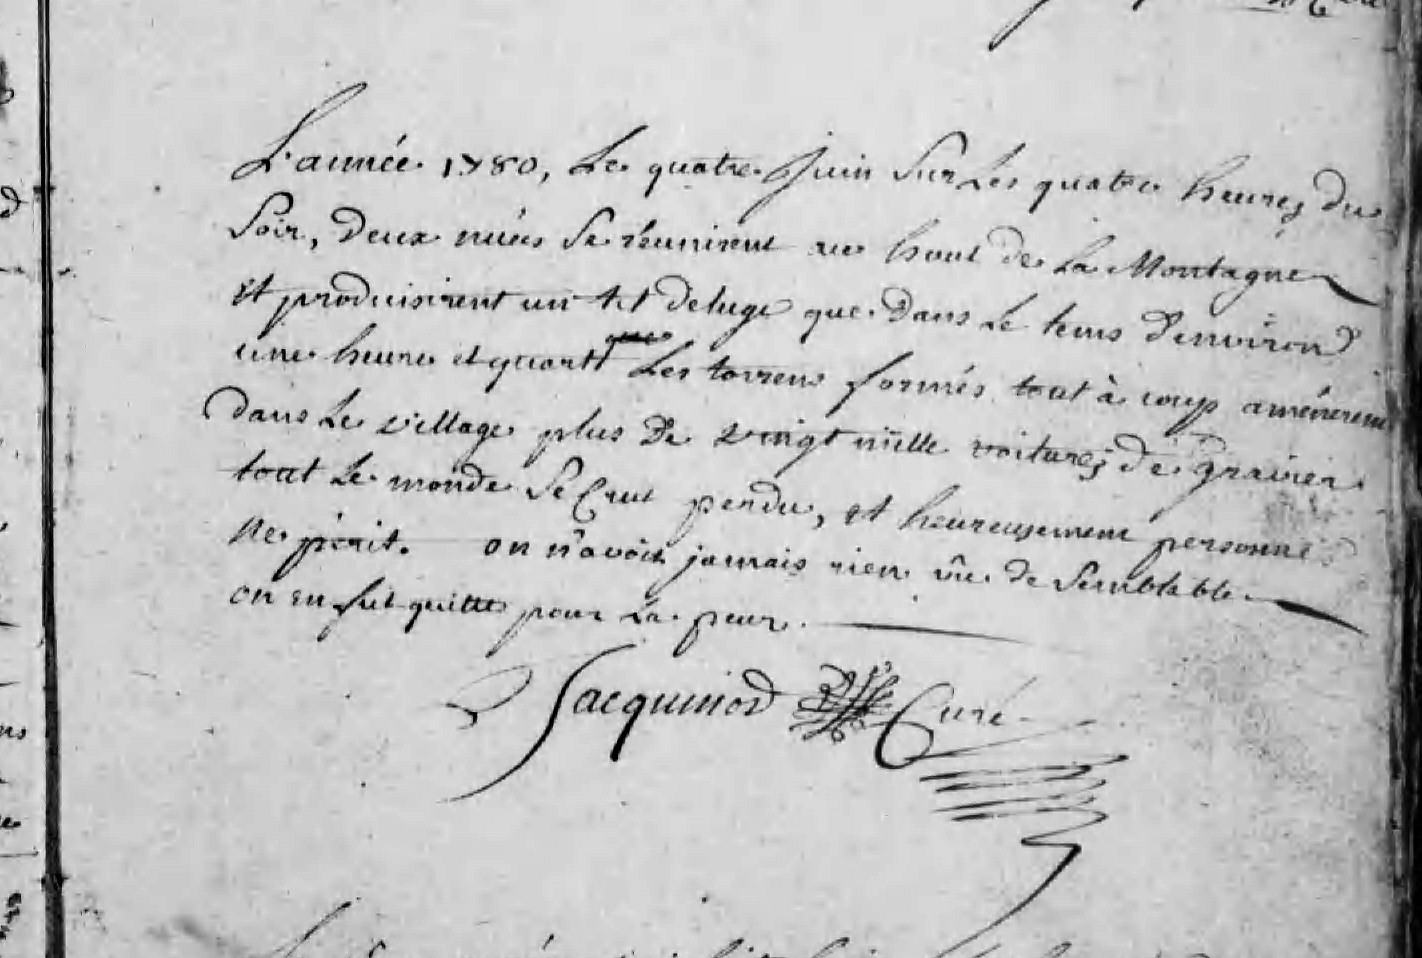 L'année 1780, Le quatre Juin Sur Les quatre heures du
Soir, deux nuées Se réunirent au haut de La Montagne
et produisirent un tel deluge que dans Le tems d'environ
une heure et quart que Les torrens formés tout à coup amenerent
dans Le village plus de vingt mille voitures de gravier
tout Le monde Se Crut perdu, et heureusement personne
ne périt. on n'avoit jamais rien vû de Semblable
on en fut quitte pour La peur.
Jacquinod Curé